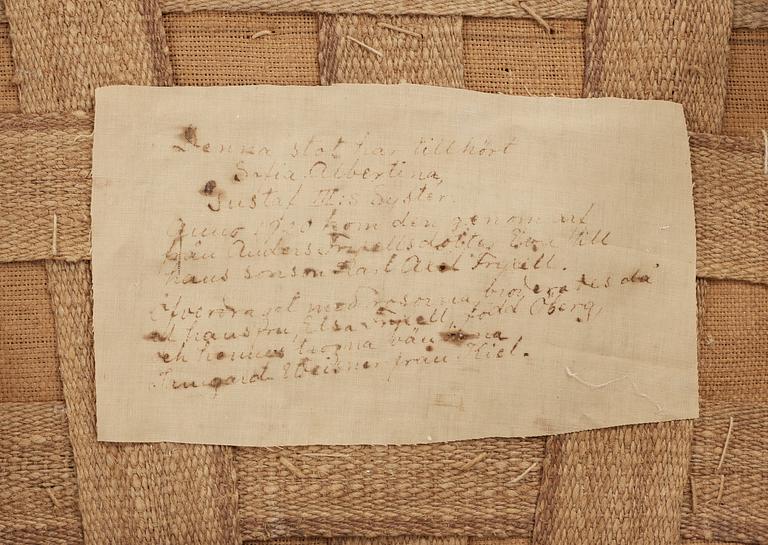 Denna stol har tillhört
Sofia Albertina,
Gustaf III:s Syster.
Anno 1920 kom den genom arf
från Anders Fryxells dotter Eva till
hans sonson Karl Axel Fryxell.
Öfverdraget med rosorna, broderades då
af hans fru Elsa Fryxell, född Öberg,
och hennes trogna vän
Irmgard Weisner från Kiel.